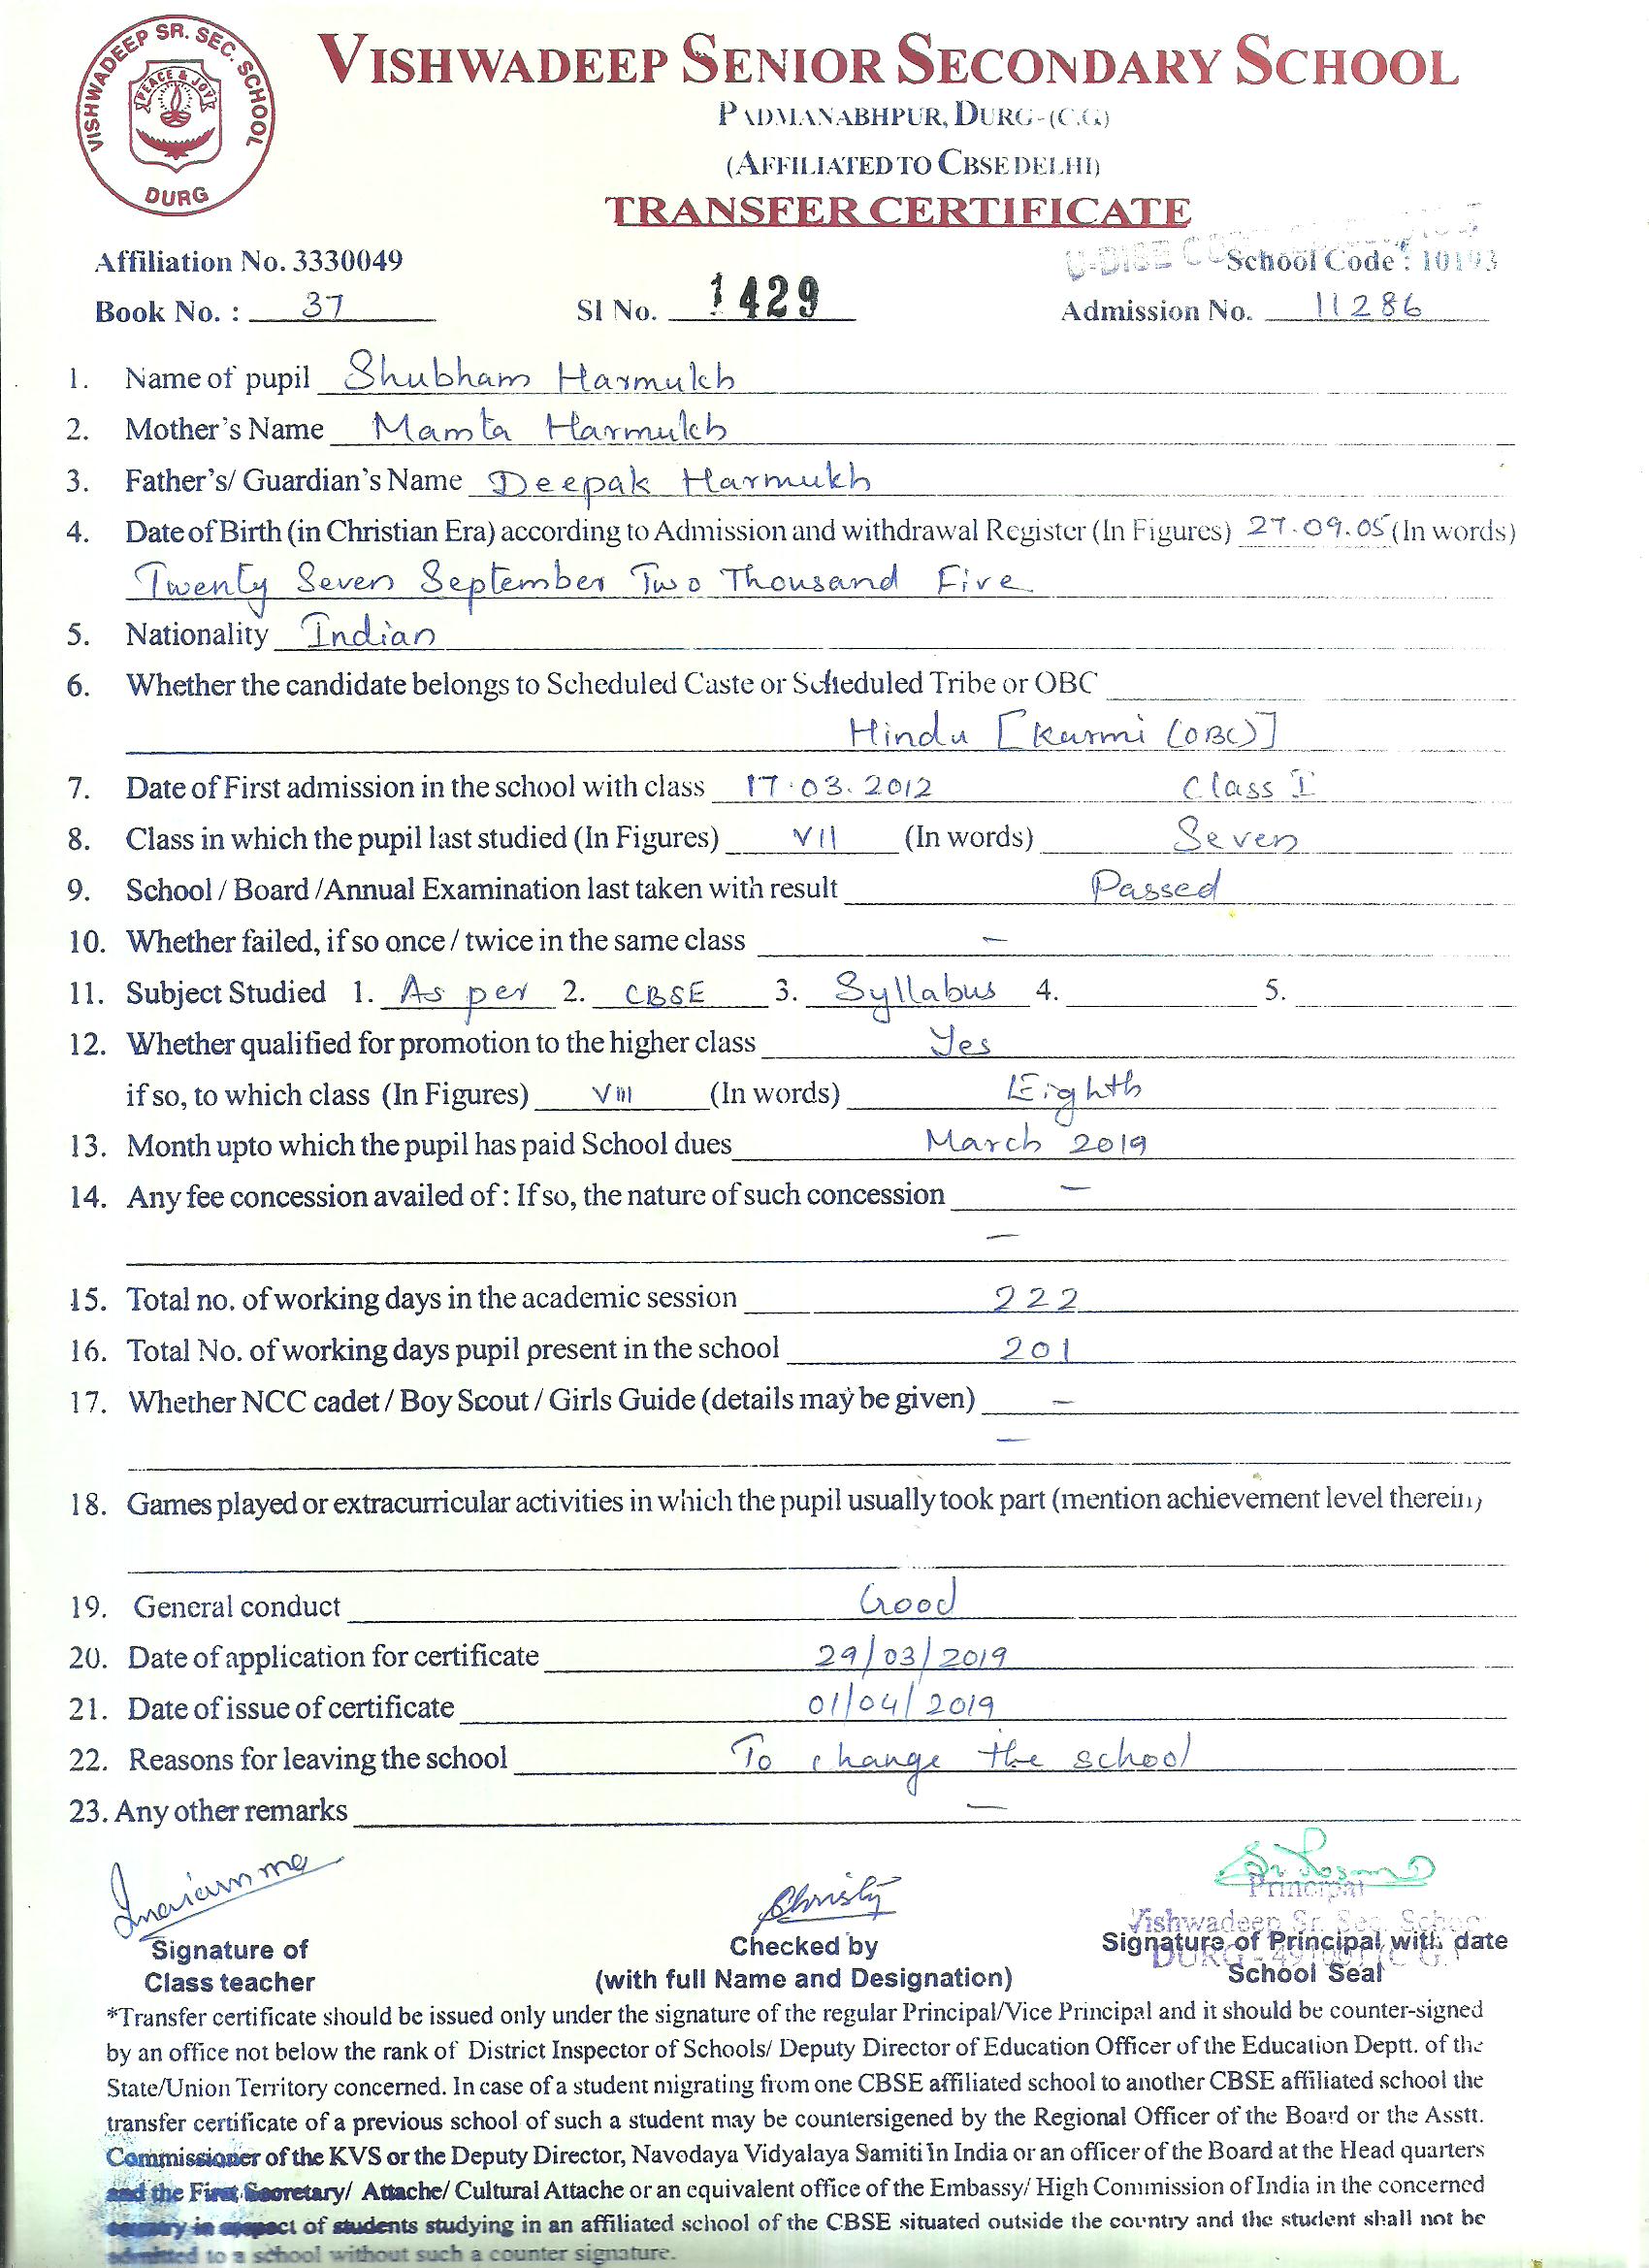 VISHWADEEP SR. SEC. SCHOOL
PEACE & JOY
DURG
VISHWADEEP SENIOR SECONDARY SCHOOL
PADMANABHPUR, DURG-(C.G)
(AFFILIATED TO CBSE DELHI)
TRANSFER CERTIFICATE
U-DISE
Affiliation No. 3330049 School Code : 10193
Book No. : 37 Sl No. 1429 Admission No. 11286
1. Name of pupil Shubham Harmukh
2. Mother's Name Mamta Harmukh
3. Father's/ Guardian's Name Deepak Harmukh
4. Date of Birth (in Christian Era) according to Admission and withdrawal Register (In Figures) 27.09.05 (In words)
Twenty Seven September Two Thousand Five
5. Nationality Indian
6. Whether the candidate belongs to Scheduled Caste or Scheduled Tribe or OBC
Hindu [Kurmi (OBC)]
7. Date of First admission in the school with class 17.03.2012 Class I
8. Class in which the pupil last studied (In Figures) VII (In words) Seven
9. School / Board /Annual Examination last taken with result Passed
10. Whether failed, if so once / twice in the same class –
11. Subject Studied 1. As per 2. CBSE 3. Syllabus 4. 5.
12. Whether qualified for promotion to the higher class Yes
if so, to which class (In Figures) VIII (In words) Eighth
13. Month upto which the pupil has paid School dues March 2019
14. Any fee concession availed of : If so, the nature of such concession –
–
15. Total no. of working days in the academic session 222
16. Total No. of working days pupil present in the school 201
17. Whether NCC cadet / Boy Scout / Girls Guide (details may be given) –
–
18. Games played or extracurricular activities in which the pupil usually took part (mention achievement level therein)
19. General conduct Good
20. Date of application for certificate 29/03/2019
21. Date of issue of certificate 01/04/2019
22. Reasons for leaving the school To change the school
23. Any other remarks –
Christy
Principal
Vishwadeep Sr. Sec. School
Signature of Checked by Signature of Principal with date
DURG
Class teacher (with full Name and Designation) School Seal
*Transfer certificate should be issued only under the signature of the regular Principal/Vice Principal and it should be counter-signed
by an office not below the rank of District Inspector of Schools/ Deputy Director of Education Officer of the Education Deptt. of the
State/Union Territory concerned. In case of a student migrating from one CBSE affiliated school to another CBSE affiliated school the
transfer certificate of a previous school of such a student may be countersigened by the Regional Officer of the Board or the Asstt.
Commissioner of the KVS or the Deputy Director, Navodaya Vidyalaya Samiti in India or an officer of the Board at the Head quarters
and the First Secretary/ Attache/ Cultural Attache or an equivalent office of the Embassy/ High Commission of India in the concerned
country in respect of students studying in an affiliated school of the CBSE situated outside the country and the student shall not be
admitted to a school without such a counter signature.